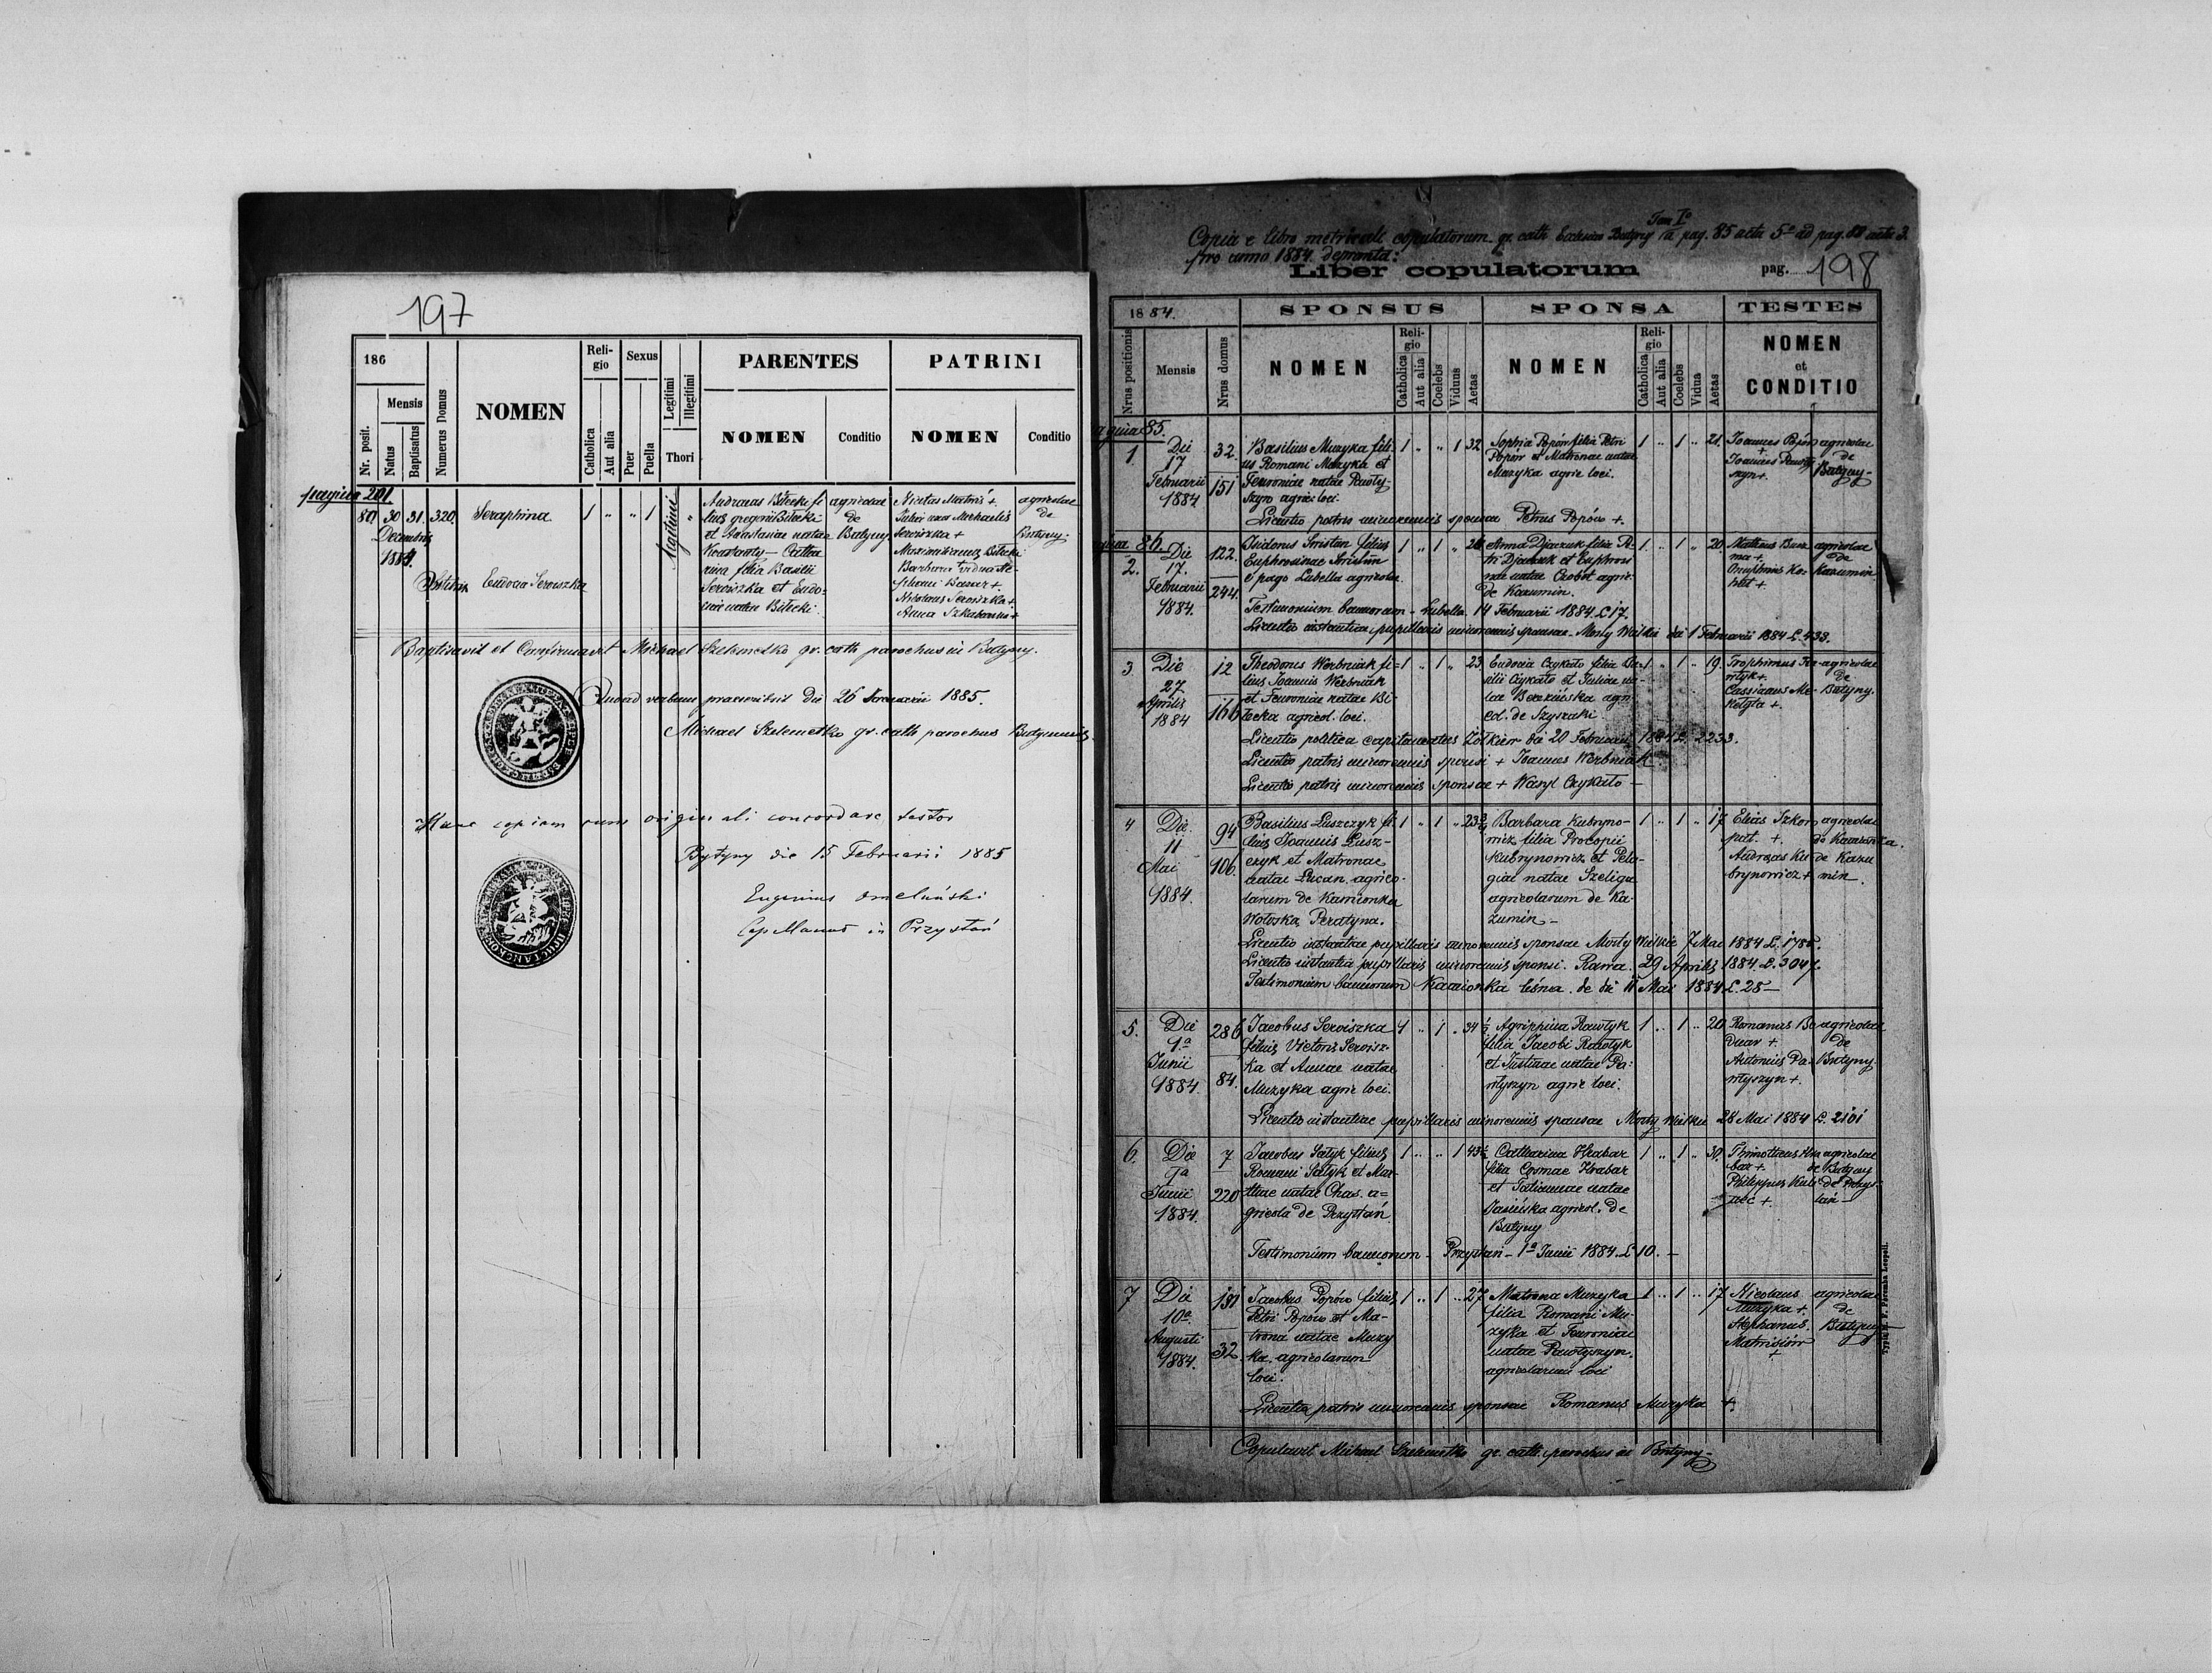 197
186
Reli-
gio
Sexus
Legitimi
Illegitimi
PARENTES
PATRINI
Nr. posit.
Mensis
Natus
Baptisatus
Numerus Domus
NOMEN
Catholica
Aut alia
Puer
Puella
Thori
NOMEN
Conditio
NOMEN
Conditio
pagina 201
80 30 31. 320. Seraphina 1 " " 1 Legitimi "
Decembris
1884.
Obstetrix Eudocia Serwiszka
Andreas Bilecki fi-
lius gregorii Bilecki
et Anastasiae natae
Catha-
rina filia Basilii
Serwiszka et Eudo-
ciae natae Bilecki.
agricolae
de
Butyny
Nicetas +
Julia uxor Michaelis
Serwiszka +
Maximilianus Bilecki
Barbara vidua Ste-
phani +
Nicolaus Serwiszka +
Anna +
agricolae
de
Butyny.
Baptisavit et Confirmavit Michael Szelemetko gr. cath parochus in Butyny.
Quoad verbum praesentibus die 26 Januarii 1885.
Michael Szelemetko gr. cath parochus Butynensis.
Hanc copiam cum originali concordare testor
Bytyny die 15 Februarii 1885
Eugenius Omeliański
Capellanus in Przystań
Tom I°
Copia e libro metricali copulatorum gr. cath Ecclesiae Butyny a pag. 85 actu 5° ad pag. 88 actu 3.
pro anno 1884 deprompta:
Liber copulatorum pag. 198
1884.
SPONSUS
SPONSA
TESTES
Nrus positionis
Mensis
Nrus domus
NOMEN
Reli-
gio
Catholica
Aut alia
Coelebs
Viduus
Aetas
NOMEN
Reli-
gio
Catholica
Aut alia
Coelebs
Vidua
Aetas
NOMEN
et
CONDITIO
pagina 85.
1. Die
17
Februarii
1884
32.
151
Basilius Muzyka fili-
us Romani Muzyka et
Fewroniae natae Pawły-
szyn agric. loci.
1 " " 1 32
Sophia Popów filia Petri
Popów et Matronae natae
Muzyka agric loci.
1 " 1 " 21.
Joannes Popów
+
Joannes Pawły-
szyn +.
agricolae
de
Butyny-
Licentia patris minorennis sponsae Petrus Popów +.
pagina 86.
2. Die
17.
Februarii
1884.
122.
244.
Isidorus Smistan filius
Euphrosinae Smistan
e pago Lubella agricolae.
1 " 1 "
Anna Djaczuk filia Pe-
tri Djaczuk et Euphrosi-
nae natae Czobit agric.
de Kazumin.
1 " 1 " 20.
Matheus
+
Onuphrius
+
agricolae
de
Kazumin
Testimonium bannorum - Lubella. 14 Februarii 1884. L 17.
Licentia instantiae pupillaris minorennis sponsae - Mosty Wielkie die 1 Februarii 1884 L. 433.
3 Die
27
Aprilis
1884
12
166
Theodorus Werbniak fi-
lius Joannis Werbniak
et Fewroniae natae Bi-
lecka agricol. loci.
1 " 1 " 23.
Eudocia Czykało filia Ba-
silii Czykało et Juliae na-
tae agri-
col. de Szyszaki.
1 " 1 " 19.
Trophimus
+.
Cassianus
+.
agricolae
de
Butyny.
Licentia politica capitaneatus Żółkiew die 20 Februarii 1884 L. 2233.
Licentia patris minorennis sponsi + Joannes Werbniak
Licentia patris minorennis sponsae + Wasyl Czykało -
4 Die
11
Mai
1884.
94
106
Basilius Łuszczyk fi-
lius Joannis Łusz-
czyk et Matronae
natae Łucan. agrico-
larum de Kamionka
Wołoska, Peratyna.
1 " 1 " 23
Barbara Kubryno-
wicz filia Procopii
Kubrynowicz et Pela-
giae natae Szeliga
agricolarum de Ka-
zumin -
1 " 1 " 17
Elias Szkoro-
pat. +.
Andreas Ku-
brynowicz +
agricolae
de Kamionka.
de Kazu
min.
Licentia instantiae pupillaris minorennis sponsae Mosty Wielkie 7 Mai 1884 L. 1785.
Licentia instantiae pupillaris minorennis sponsi. Rawa. 29 Aprilis 1884. L. 3047.
Testimonium bannorum Kamionka leśna. de die 11 Mai 1884 L. 28 -
5. Die
1a
Junii
1884.
286
84.
Jacobus Serwiszka
filius Victoris Serwisz-
ka et Annae natae
Muzyka agric loci.
1 " 1 " 34 ½
Agrippina Pawłyk
filia Jacobi Pawłyk
et Justinae natae Pa-
włyszyn agric loci.
1 " 1 " 20
Romanus Bo-
dnar +.
Antonius Pa-
włyszyn +.
agricolae
de
Butyny.
Licentia instantiae pupillaris minorennis sponsae Mosty Wielkie 28 Mai 1884 L. 2101
6. Die
7a
Junii
1884.
7
220
Jacobus Satyk filius
Romani Satyk et Mar-
thae natae Chas. a=
gricola de Przystań
1 " " 1 43½
Catharina Hrabar
filia Cosmae Hrabar
et Tatiannae natae
Jasińska agricol. de
Butyny
1 " 1 " 30.
Timotheus Hra-
bar +.
Philippus Kul-
+
agricolae
de Butyny
de Przys-
tań -
Testimonium bannorum - Przystań - 1a Junii 1884. L 10. -
7 Die
10a
Augusti
1884.
151
32
Jacobus Popów filius
Petri Popów et Ma-
trona natae Muzy
ka. agricolarum
loci.
1 " 1 " 27
Matrona Muzyka
filia Romani Mu-
zyka et Fewroniae
natae Pawłyszyn.
agricolarum loci
1 " 1 " 17
Nicolaus
Muzyka +.
Stephanus.
+
agricolae
de
Butyny
Licentia patris minorennis sponsae Romanus Muzyka +.
Copulavit Michael Szelemetko gr. cath. parochus in Butyny -